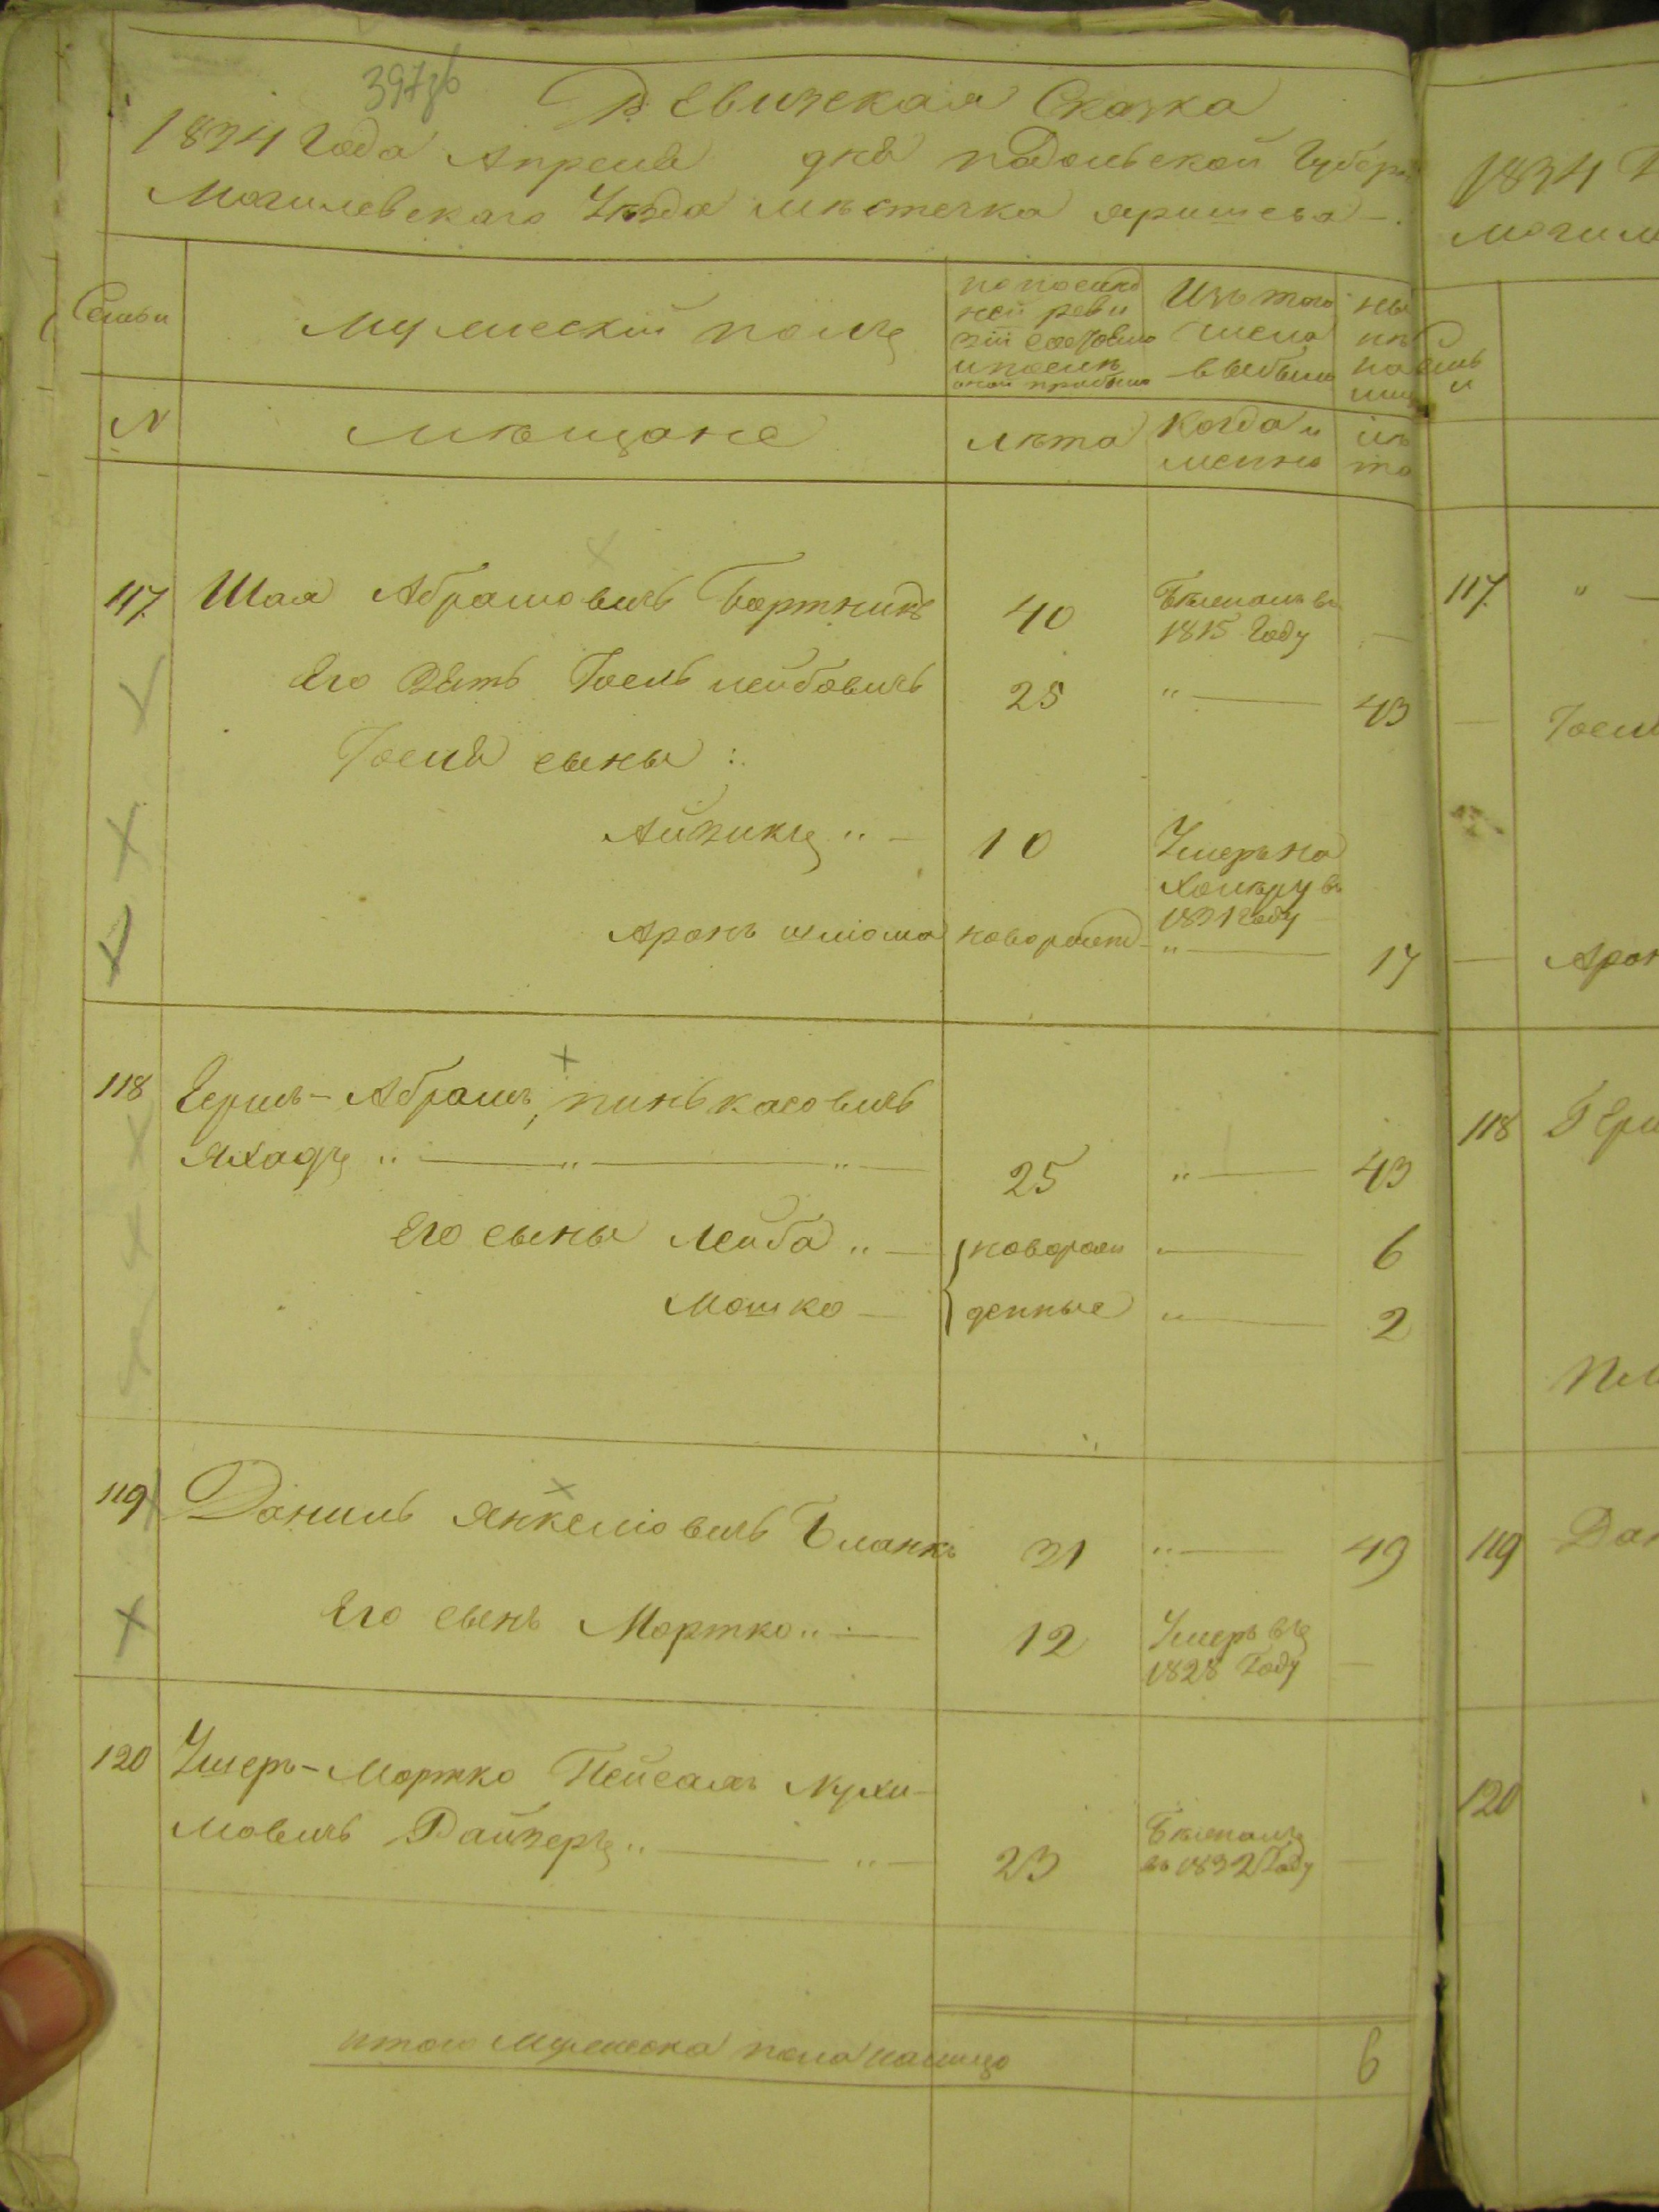 397об
Ревизская Сказка
1834 Года Апреля дня подольской Губерн
Могилевскаго Уезда местечка яришева
Семьи
мужеский полъ
по послед
ней реви
зіи состояло
и после
оной прибыло
Изъ того
числа
выбыло
ны
не
на
лицо
N
мещане
лета
когда и
менно
ле
та
117 Шая Абрамовичь Бортникъ 40 Бежалъ въ
1815 Году —
Его Зять Іоель лейбовичь 25 " — 43
Іоеля сыны :
Айзикъ " — 10 Умеръ на
холеру въ
1831 Году
Аронъ шліома новорожд " — 17
118 Гершъ-Абрамъ пинькасовичь
Яхадъ " — " — " — 25 " — 43
Его сыны Лейба " — новорож " — 6
Мошко — денные " — 2
119 Даниль Янкеліовичь Бланкъ 31 " — 49
Его сынъ Мортко " — 12 Умеръ въ
1828 Году —
120 Ушеръ-Мортко Пейсахъ Нухи-
мовичь Райзеръ " — " — 23 Бежалъ
въ 1832 Году —
итого мужеска пола налицо 6
1834 Г
могил
117 " —
— Іоел
— Арон
118 Гер
119 Дан
120